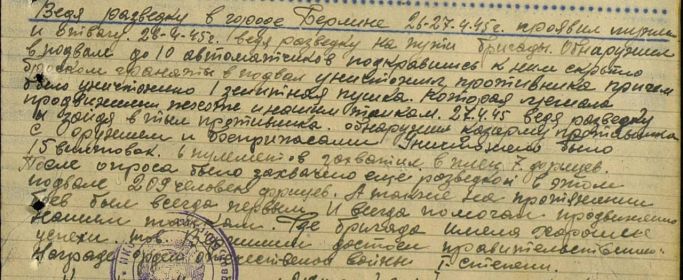 Ведя разведку в городе Берлине 26-27.4.45г. проявил
и отвагу. 24-4.45г. ведя разведку на пути бригады. Обнаружил
в подвале до 10 автоматчиков подкравшись к ним скрытно
броском гранаты в подвал уничтожил противника причем
было уничтожено 1 зенитная пушка. Которая мешала
продвижению пехоте и нашим танкам. 27.4.45 ведя разведку
и зайдя в тыл противника. обнаружил казарму противника
с оружием и боеприпасами Уничтожено было
15 винтовок. 6 пулеметов захватил в плен 7 фрицев.
После опроса было захвачено еще разведкой в этом
подвале 209 человек фрицев. А также на протяжении
был всегда первым. И всегда помогал продвижению
нашим танкам. Где бригада имела хорошие
успехи. тов. достоин правительственной
награды орден отечественной войны I степени.